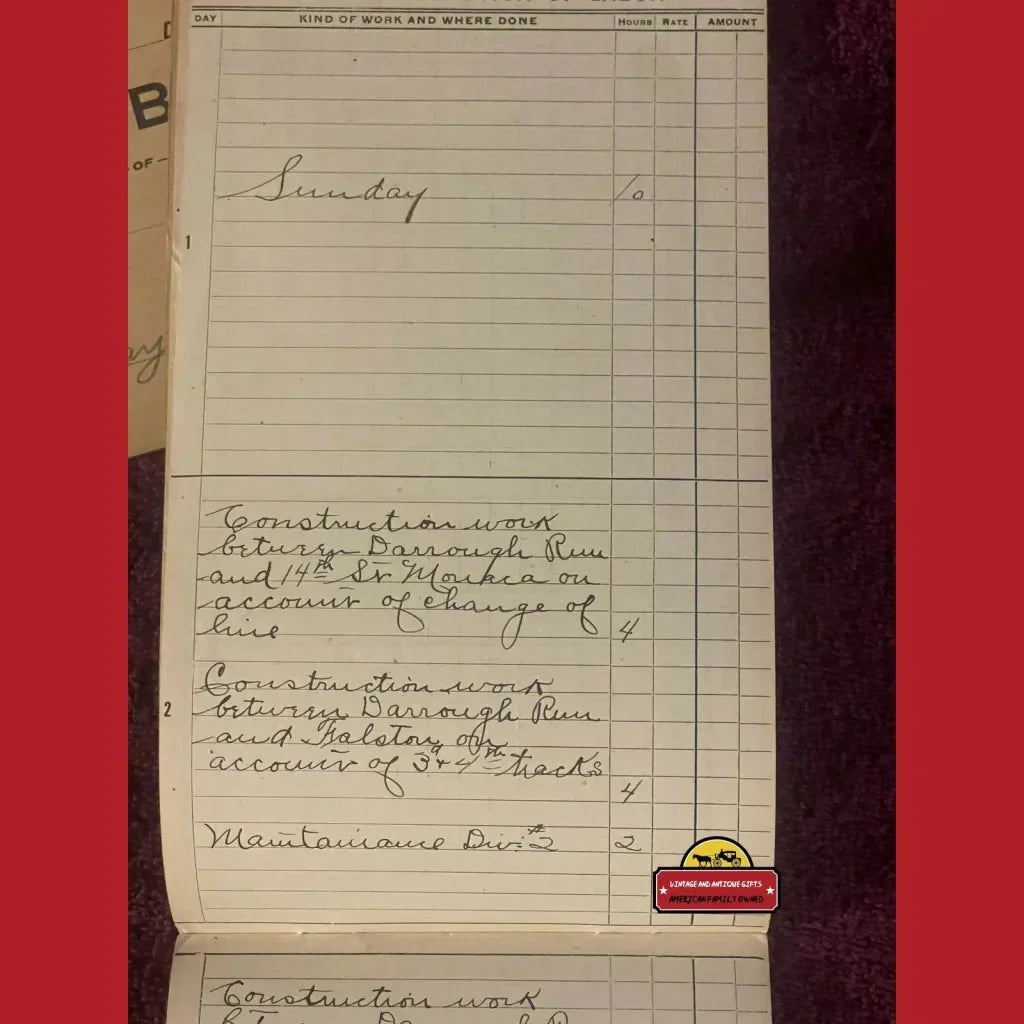 B
OF —
DAY KIND OF WORK AND WHERE DONE HOURS RATE AMOUNT
Sunday 10
1
Construction work
between Darrough Run
and 14th St Monaca on
account of change of
line 4
Construction work
2 between Darrough Run
and Falston on
account of 3d & 4th tracks
4
Maintainance Div. #2 2
VINTAGE AND ANTIQUE GIFTS
AMERICAN FAMILY OWNED
Construction work